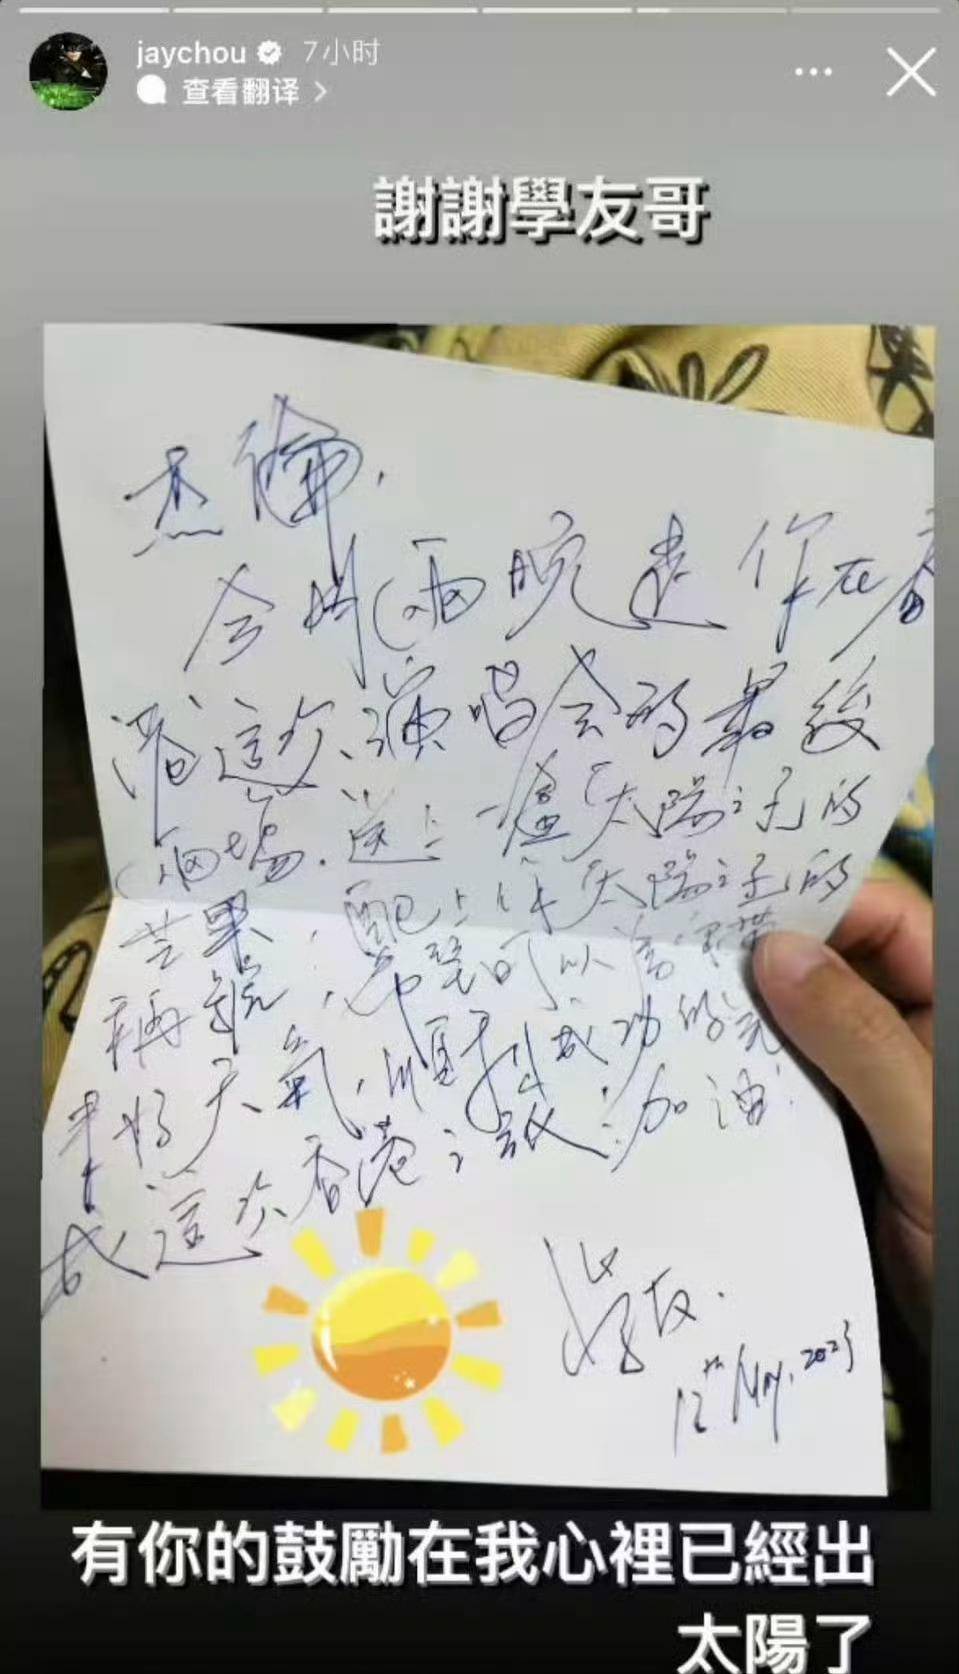 jaychou 7小时
查看翻译
謝謝學友哥
杰倫,
今明兩晚是你在香
港這次演唱会的最後
兩場,送上一盒「太陽之子的
芒果,配上你「太陽之子的
稱號,希望可以為你帶
來好天氣,順利成功的完
成這次香港之旅!加油!
學友.
12th May, 2023
有你的鼓勵在我心裡已經出
太陽了